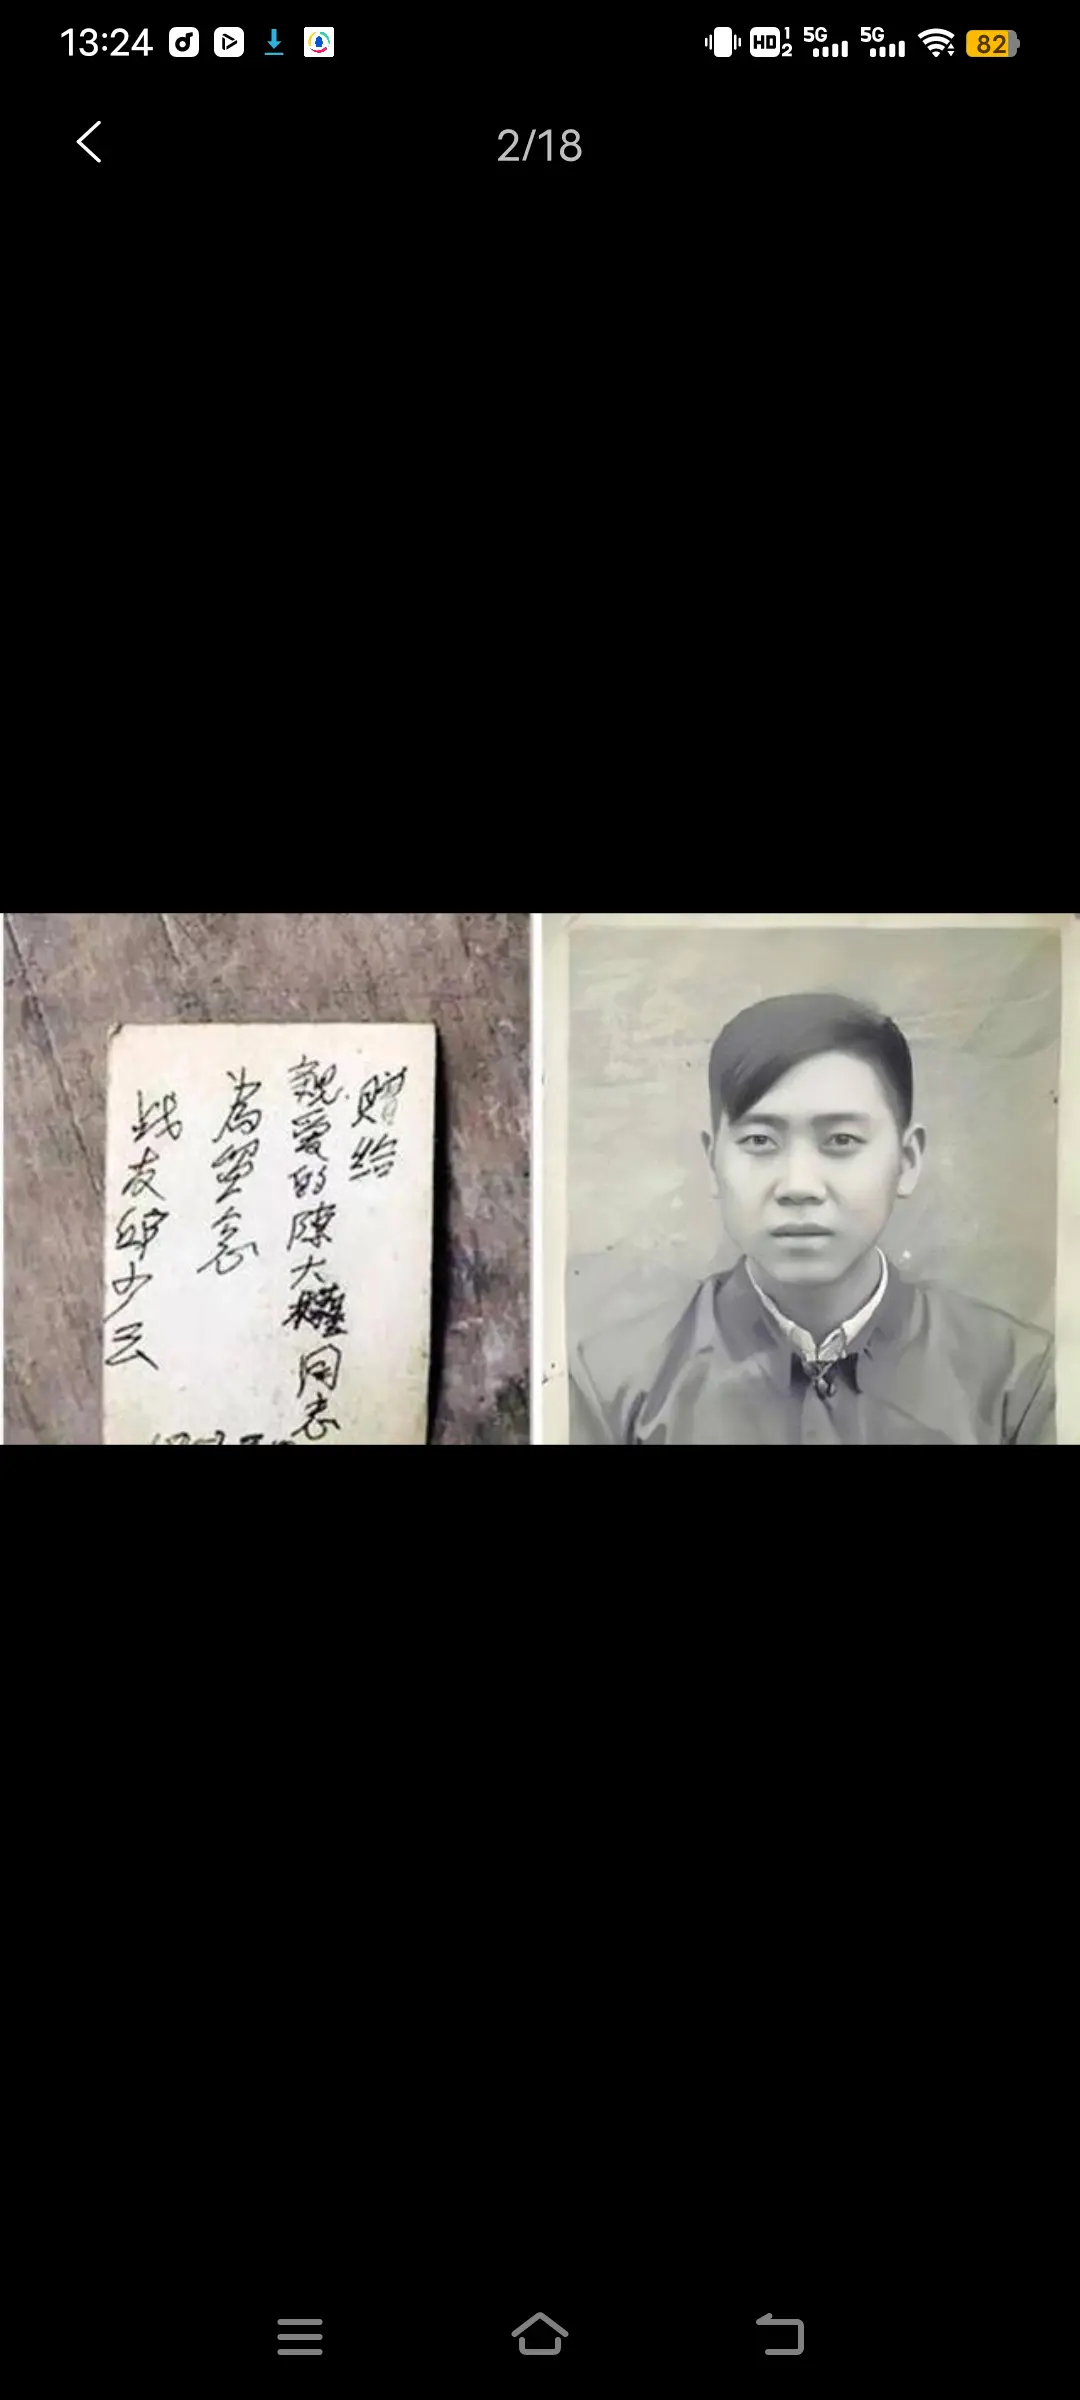 13:24
HD 1 2 5G 5G 82
2/18
赠给
親爱的陳大 同志
为留念
战友邱少云